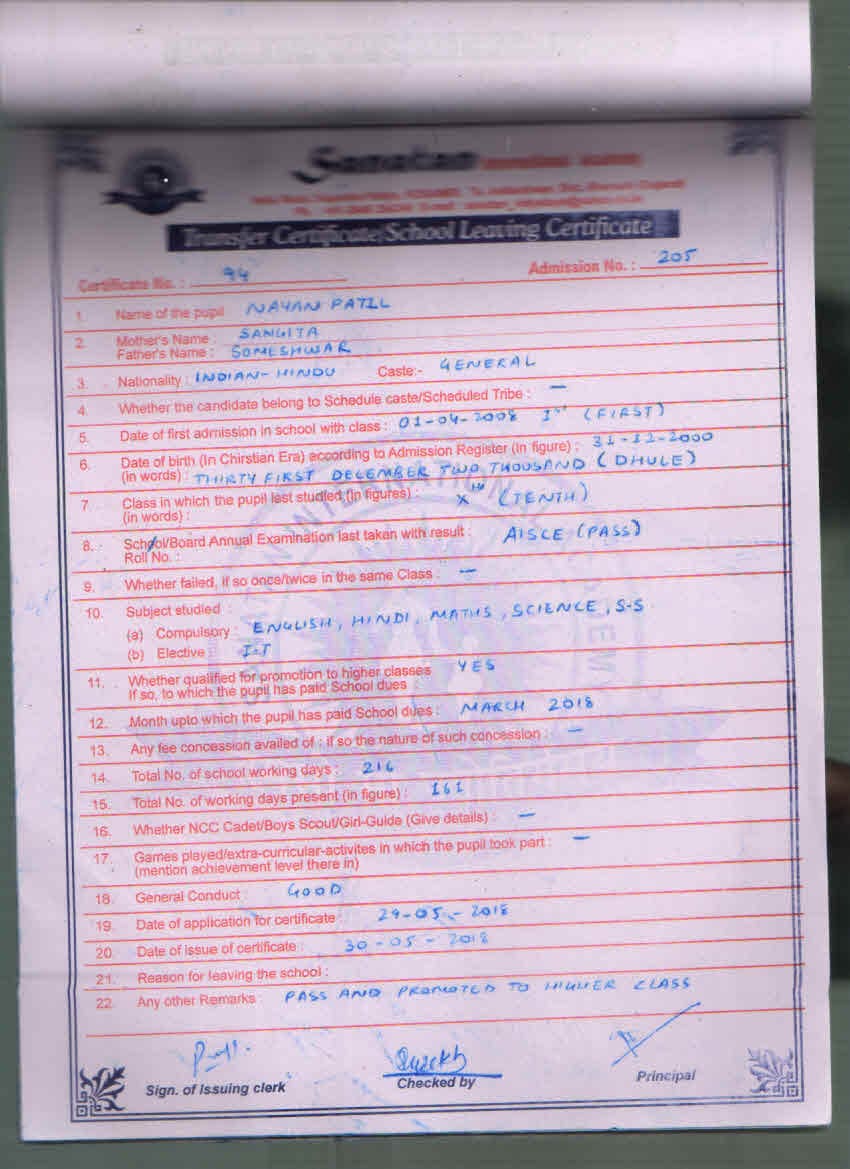 Sanatan
Transfer Certificate/School Leaving Certificate
Certificate No. : 94 Admission No. : 205
1. Name of the pupil NAYAN PATIL
2. Mother's Name : SANGITA
Father's Name : SOMESHWAR
3. Nationality : INDIAN-HINDU Caste:- GENERAL
4. Whether the candidate belong to Schedule caste/Scheduled Tribe : —
5. Date of first admission in school with class : 01-04-2008 Ist (FIRST)
6. Date of birth (In Chirstian Era) according to Admission Register (In figure) : 31-12-2000
(in words) : THIRTY FIRST DECEMBER TWO THOUSAND (DHULE)
7. Class in which the pupil last studied (in figures) : Xth (TENTH)
(in words) :
8. School/Board Annual Examination last taken with result : AISCE (PASS)
Roll No. :
9. Whether failed, if so once/twice in the same Class : —
10. Subject studied :
(a) Compulsory : ENGLISH, HINDI, MATHS, SCIENCE, S-S
(b) Elective : I-T
11. Whether qualified for promotion to higher classes YES
If so, to which the pupil has paid School dues
12. Month upto which the pupil has paid School dues : MARCH 2018
13. Any fee concession availed of : if so the nature of such concession : —
14. Total No. of school working days : 216
15. Total No. of working days present (in figure) : 161
16. Whether NCC Cadet/Boys Scout/Girl-Guide (Give details) : —
17. Games played/extra-curricular-activites in which the pupil took part : —
(mention achievement level there in)
18. General Conduct : GOOD
19. Date of application for certificate : 29-05-2018
20. Date of issue of certificate : 30-05-2018
21. Reason for leaving the school :
22. Any other Remarks : PASS AND PROMOTED TO HIGHER CLASS
Sign. of Issuing clerk Checked by Principal